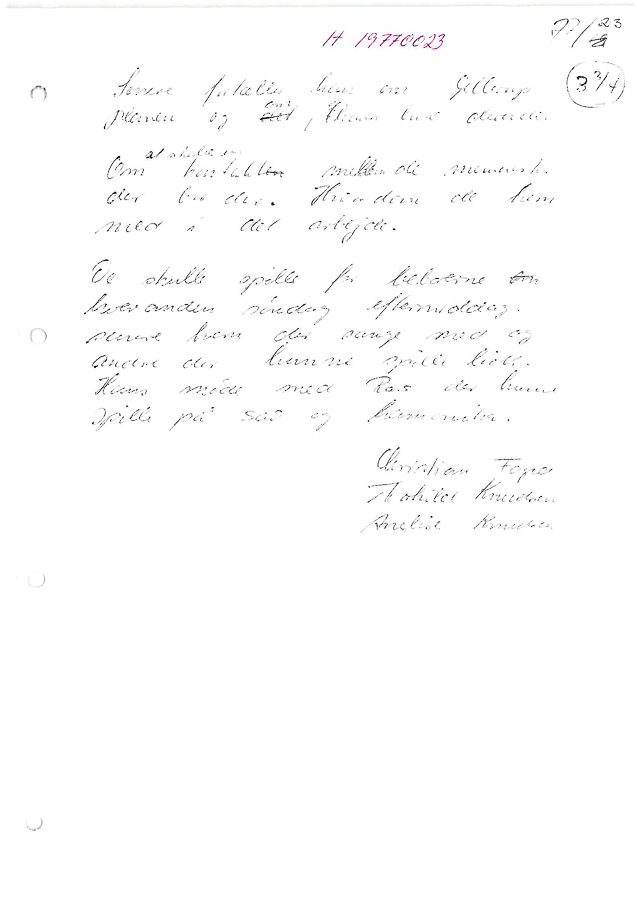 H 19770023
77/23
3 3/4
Senere fortæller hans om Gellerup
planen og om,
at skabe en
Om kontakten mellem de mennesker
der bor der. Hvordan de kom
med i det arbejde.
De skulle spille for beboerne om
hveranden søndag eftermiddag.
senere kom der sange med og
andre der kunne spille lidt.
Hans møde med der kunne
spille på sav og harmonika.
Christian
Knudsen
Anelise Knudsen